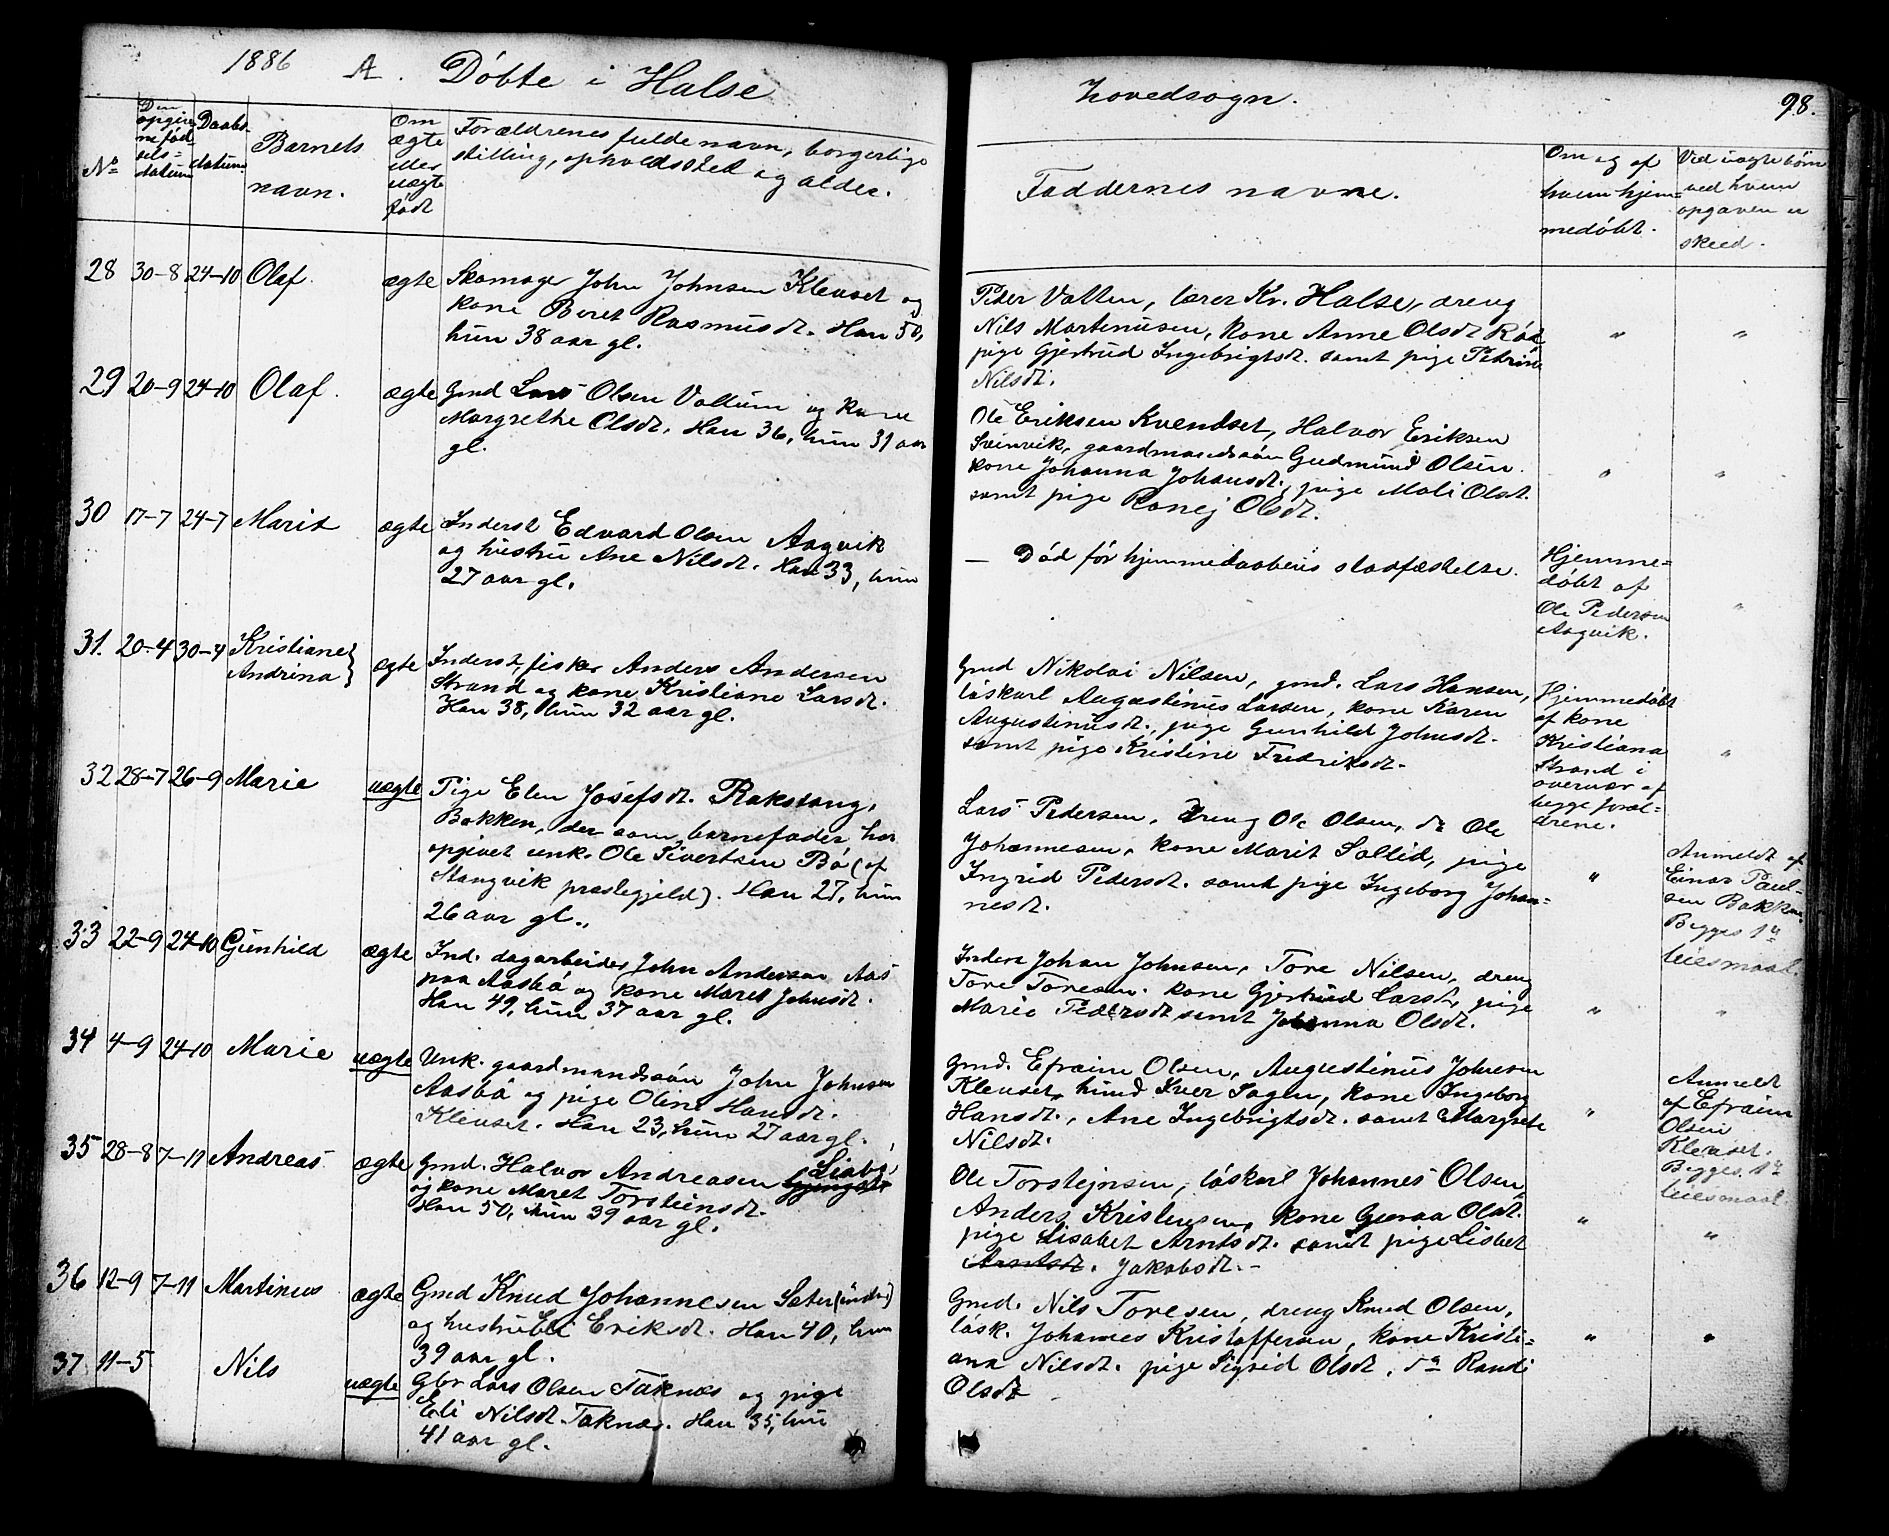 1886 A. Döbte i Halse
No
Den opgivne fødselsdatum
Daabsdatum
Barnets navn.
Om ægte eller uægte født
Forældrenes fulde navn, borgerlige
stilling, opholdssted og alder.
28 30-8 24-10 Olaf. ægte Skomager John Johnsen Klevset og
kone Beret Rasmusdt. Han 50,
hun 38 aar gl.
29 20-9 24-10 Olaf. ægte Gmd Lars Olsen Vollum og kone
Margrethe Olsdt. Han 36, hun 31 aar
gl.
30 17-7 24-7 Marit ægte Inderst Edvard Olsen Aagvik
og hustru Ane Nilsdt. Han 33, hun
27 aar gl.
31. 20-4 30-4 Kristiane
Andrina } ægte Inderst, fisker Anders Andersen
Strand og kone Kristiane Larsdt.
Han 38, hun 32 aar gl.
32 28-7 26-9 Marie uægte Pige Elen Josefsdt. Rakstang,
Bakken, der som barnefader har
opgivet unk. Ole Sivertsen Bö (af
Stangvik præstegjeld). Han 27, hun
26 aar gl.
33 22-9 24-10 Gunhild ægte Ind. dagarbeider John Andersen Aas
paa Aasbö og kone Maret Johnsdt.
Han 49, hun 37 aar gl.
34 4-9 24-10 Marie uægte Unk. gaardmandssön John Johnsen
Aasbö og pige Oline Hansdt.
Klevset. Han 23, hun 27 aar gl.
35 28-8 7-11 Andreas ægte Gmd. Halvor Andreasen Liabö
og kone Maret Torsteinsdt.
Han 50, hun 39 aar gl.
36 12-9 7-11 Martinus ægte Gmd Knud Johannesen Sæter (indre)
og hustru Eli Eriksdt. Han 40, hun
39 aar gl.
37. 11-5 Nils uægte Gbr Lars Olsen Taknæs og pige
Eli Nilsdt. Taknæs. Han 35, hun
41 aar gl.
hovedsogn. 98.
Faddernes navne.
Om og af
hvem hjem-
medöbt.
Ved uægte börn
ved hvem
opgaven er
skeed.
Peder Vatten, lærer Kr. Halse, dreng
Nils Martinusen, kone Anne Olsdt Röd,
pige Gjertrud Ingebrigtsdt. samt pige Petrine
Nilsdt. " "
Ole Eriksen Kvendset, Halvor Eriksen
Svinvik, gaardmandssön Gudmund Olsen.
kone Johanna Johansdt., pige Mali Olsdt.
samt pige Ranej Olsdt. " "
— Död för hjemmedaabens stadfæstelse.
Hjemme-
döbt af
Ole Pedersen
Aagvik. "
Gmd Nikolai Nilsen, gmd. Lars Hansen,
löskarl Augustinus Larsen, kone Karen
Augustinusdt., pige Gunhild Johnsdt.
samt pige Kristine Fredriksdt.
Hjemmedöbt
af kone
Kristiana
Strand i
overvær af
begge foræl-
drene. "
Lars Pedersen, dreng Ole Olsen, do Ole
Johannesen, kone Marit Sollid, pige
Ingrid Pedersdt. samt pige Ingeborg Johan-
nesdt. "
Anmeldt af
Einar Paul-
sen Bakken.
Begges 1ste
leiesmaal.
Inderst Johan Johnsen, Tore Nilsen, dreng
Tore Toresen. kone Gjertrud Larsdt, pige
Marie Pedersdt samt Johanna Olsdt. " "
Gmd. Efraim Olsen, Augustinus Johnsen
Klevset, hmd Iver Sagen, kone Ingeborg
Hansdt., Ane Ingebrigtsdt. samt Margrete
Nilsdt. "
Anmeldt
af Efraim
Olsen
Klevset.
Begges 1ste
leiesmaal
Ole Torstejnsen, löskarl Johannes Olsen,
Anders Kristensen, kone Guraa Olsdt.
pige Lisabet Arntsdt. samt pige Lisbet
Arntsdt. Jakobsdt. — " "
Gmd. Nils Toresen, dreng Knud Olsen,
lösk. Johannes Kristoffersen, kone Kristi-
ana Nilsdt. pige Sigrid Olsdt, do Randi
Olsdt " "